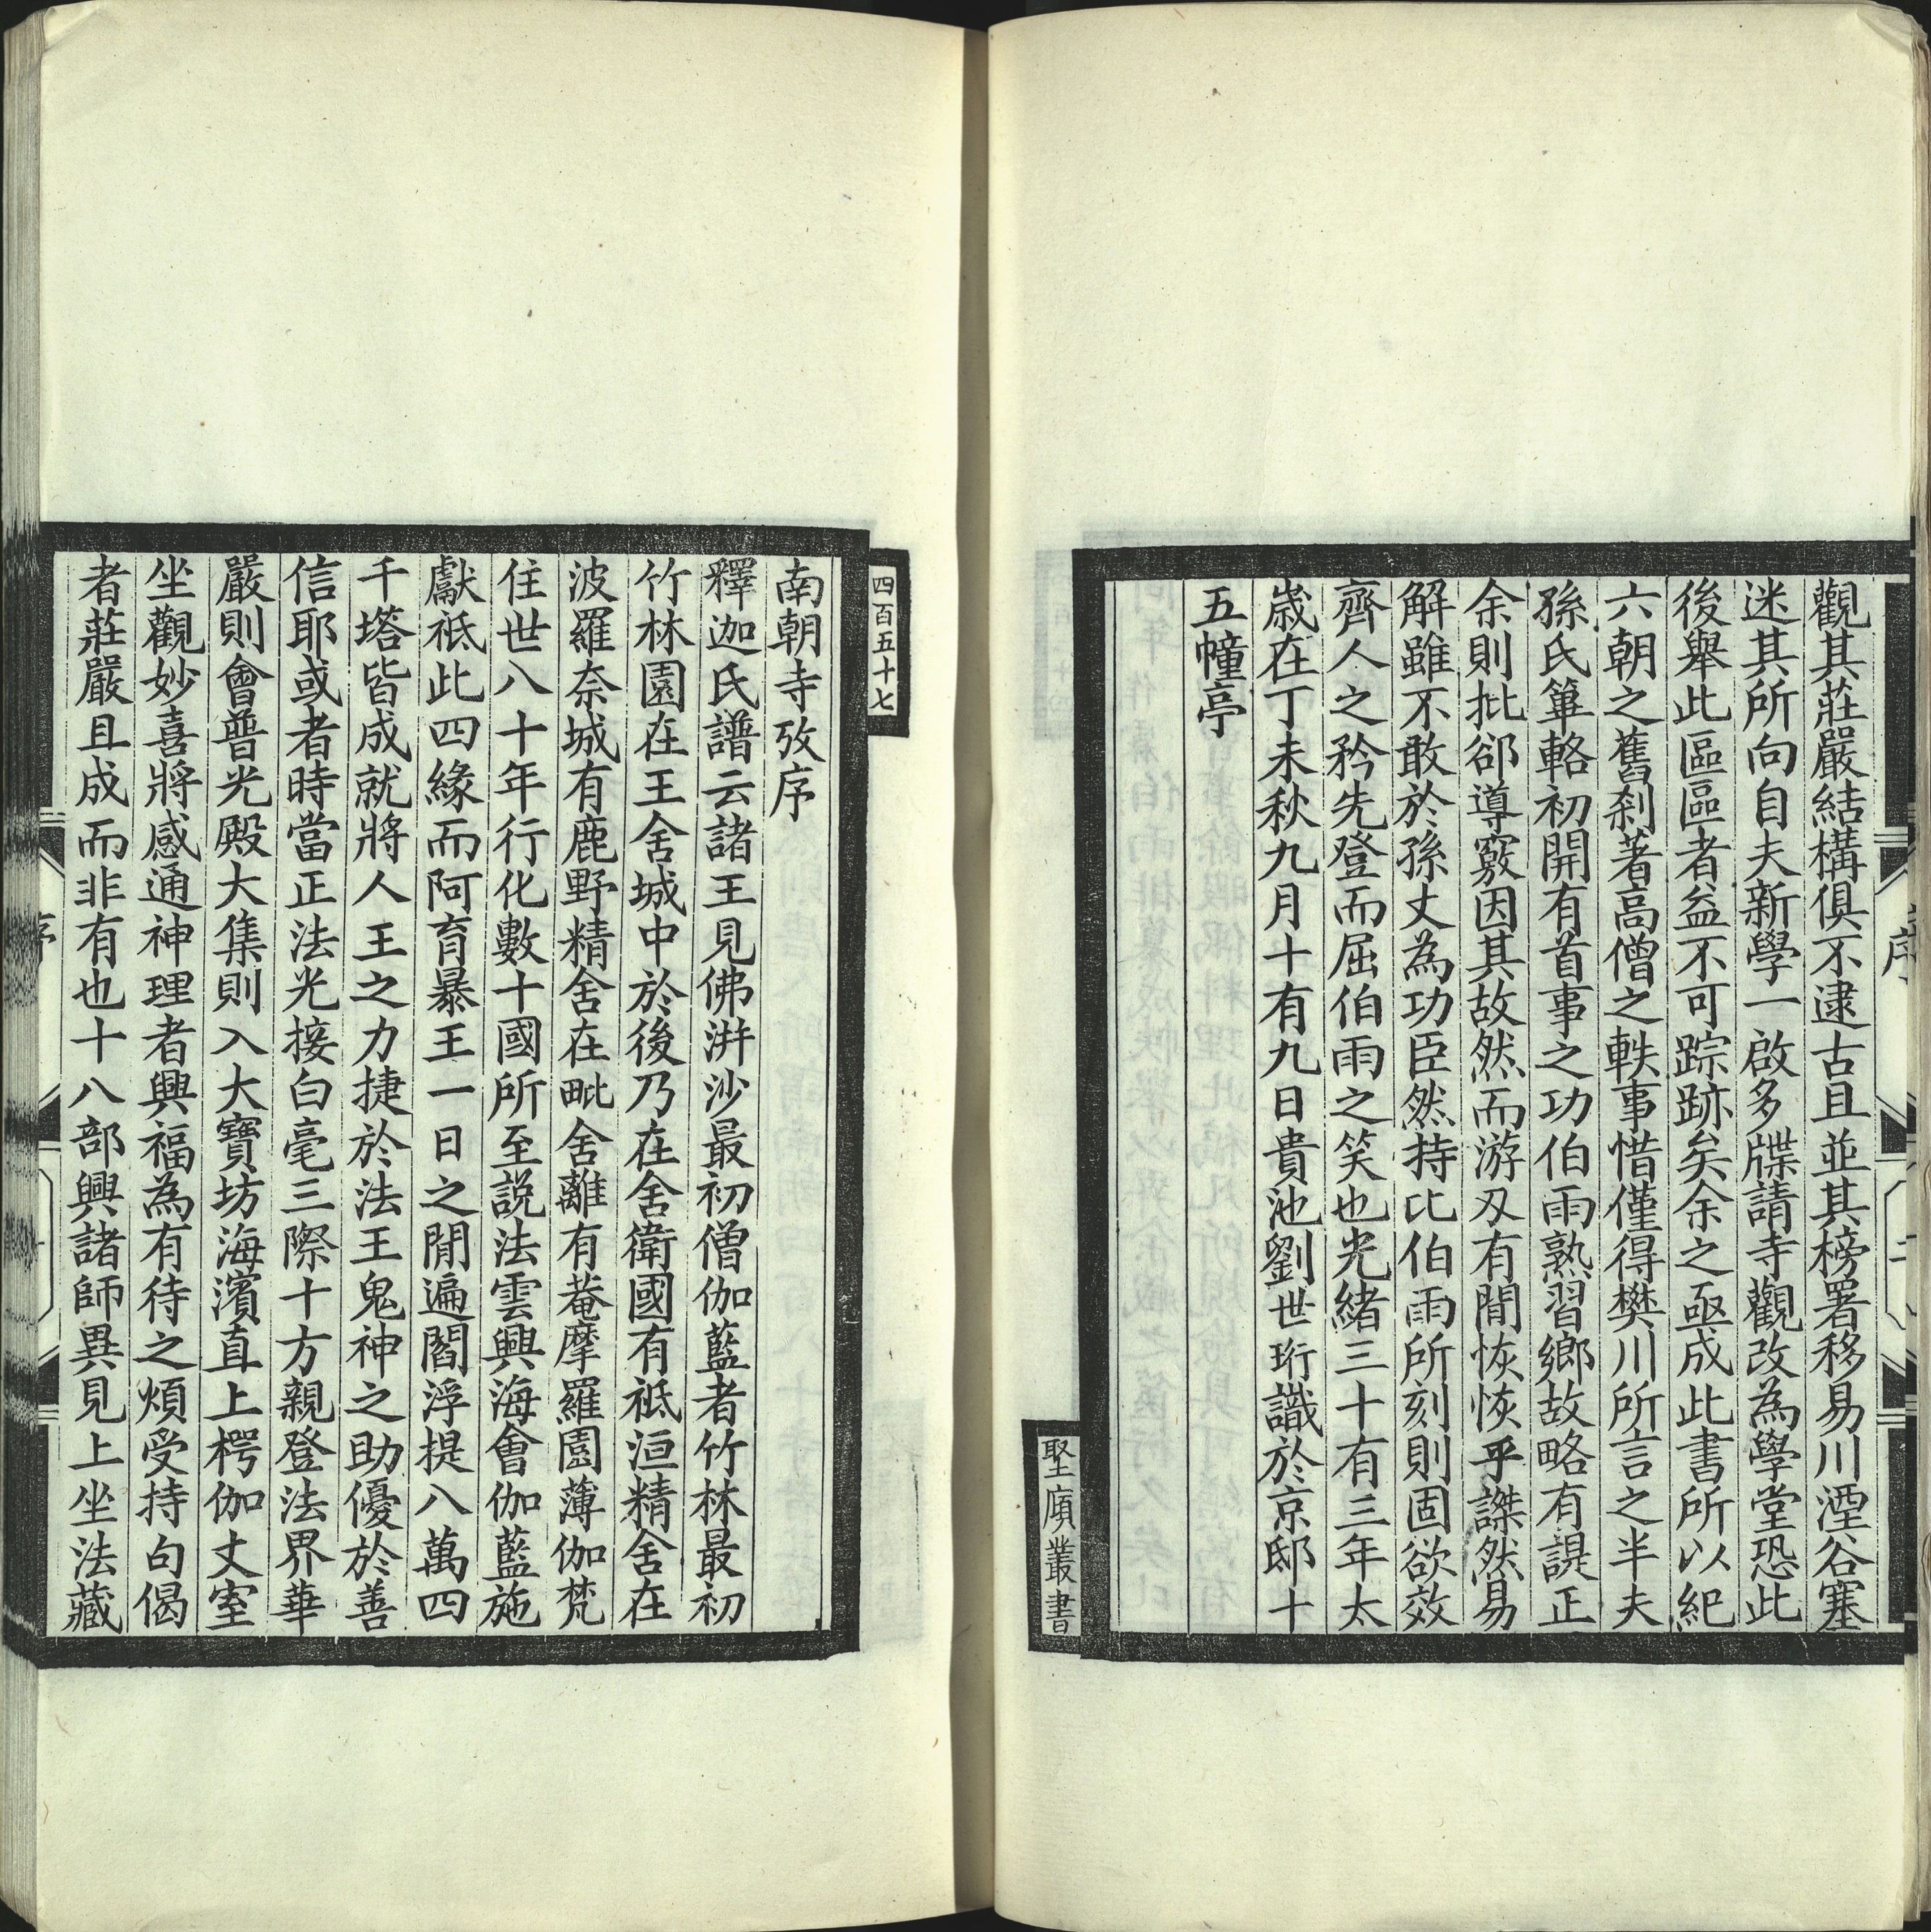 觀其莊嚴結構俱不逮古且並其榜署移易川湮谷塞
迷其所向自夫新學一啟多牒請寺觀改為學堂恐此
後舉此區區者益不可踪跡矣余之亟成此書所以紀
六朝之舊剎著高僧之軼事惜僅得樊川所言之半夫
孫氏篳輅初開有首事之功伯雨熟習鄉故略有諟正
余則批郤導窾因其故然而游刃有閒恢恢乎謋然易
解雖不敢於孫丈為功臣然持比伯雨所刻則固欲效
齊人之矜先登而屈伯雨之笑也光緒三十有三年太
歲在丁未秋九月十有九日貴池劉世珩識於京邸十
五幢亭
序
聚廎叢書
四百五十七
南朝寺攷序
釋迦氏譜云諸王見佛洴沙最初僧伽藍者竹林最初
竹林園在王舍城中於後乃在舍衛國有祗洹精舍在
波羅奈城有鹿野精舍在毗舍離有菴摩羅園薄伽梵
住世八十年行化數十國所至說法雲興海會伽藍施
獻祗此四緣而阿育暴王一日之閒遍閻浮提八萬四
千塔皆成就將人王之力捷於法王鬼神之助優於善
信耶或者時當正法光接白毫三際十方親登法界華
嚴則會普光殿大集則入大寶坊海濱直上楞伽丈室
坐觀妙喜將感通神理者興福為有待之煩受持句偈
者莊嚴且成而非有也十八部興諸師異見上坐法藏